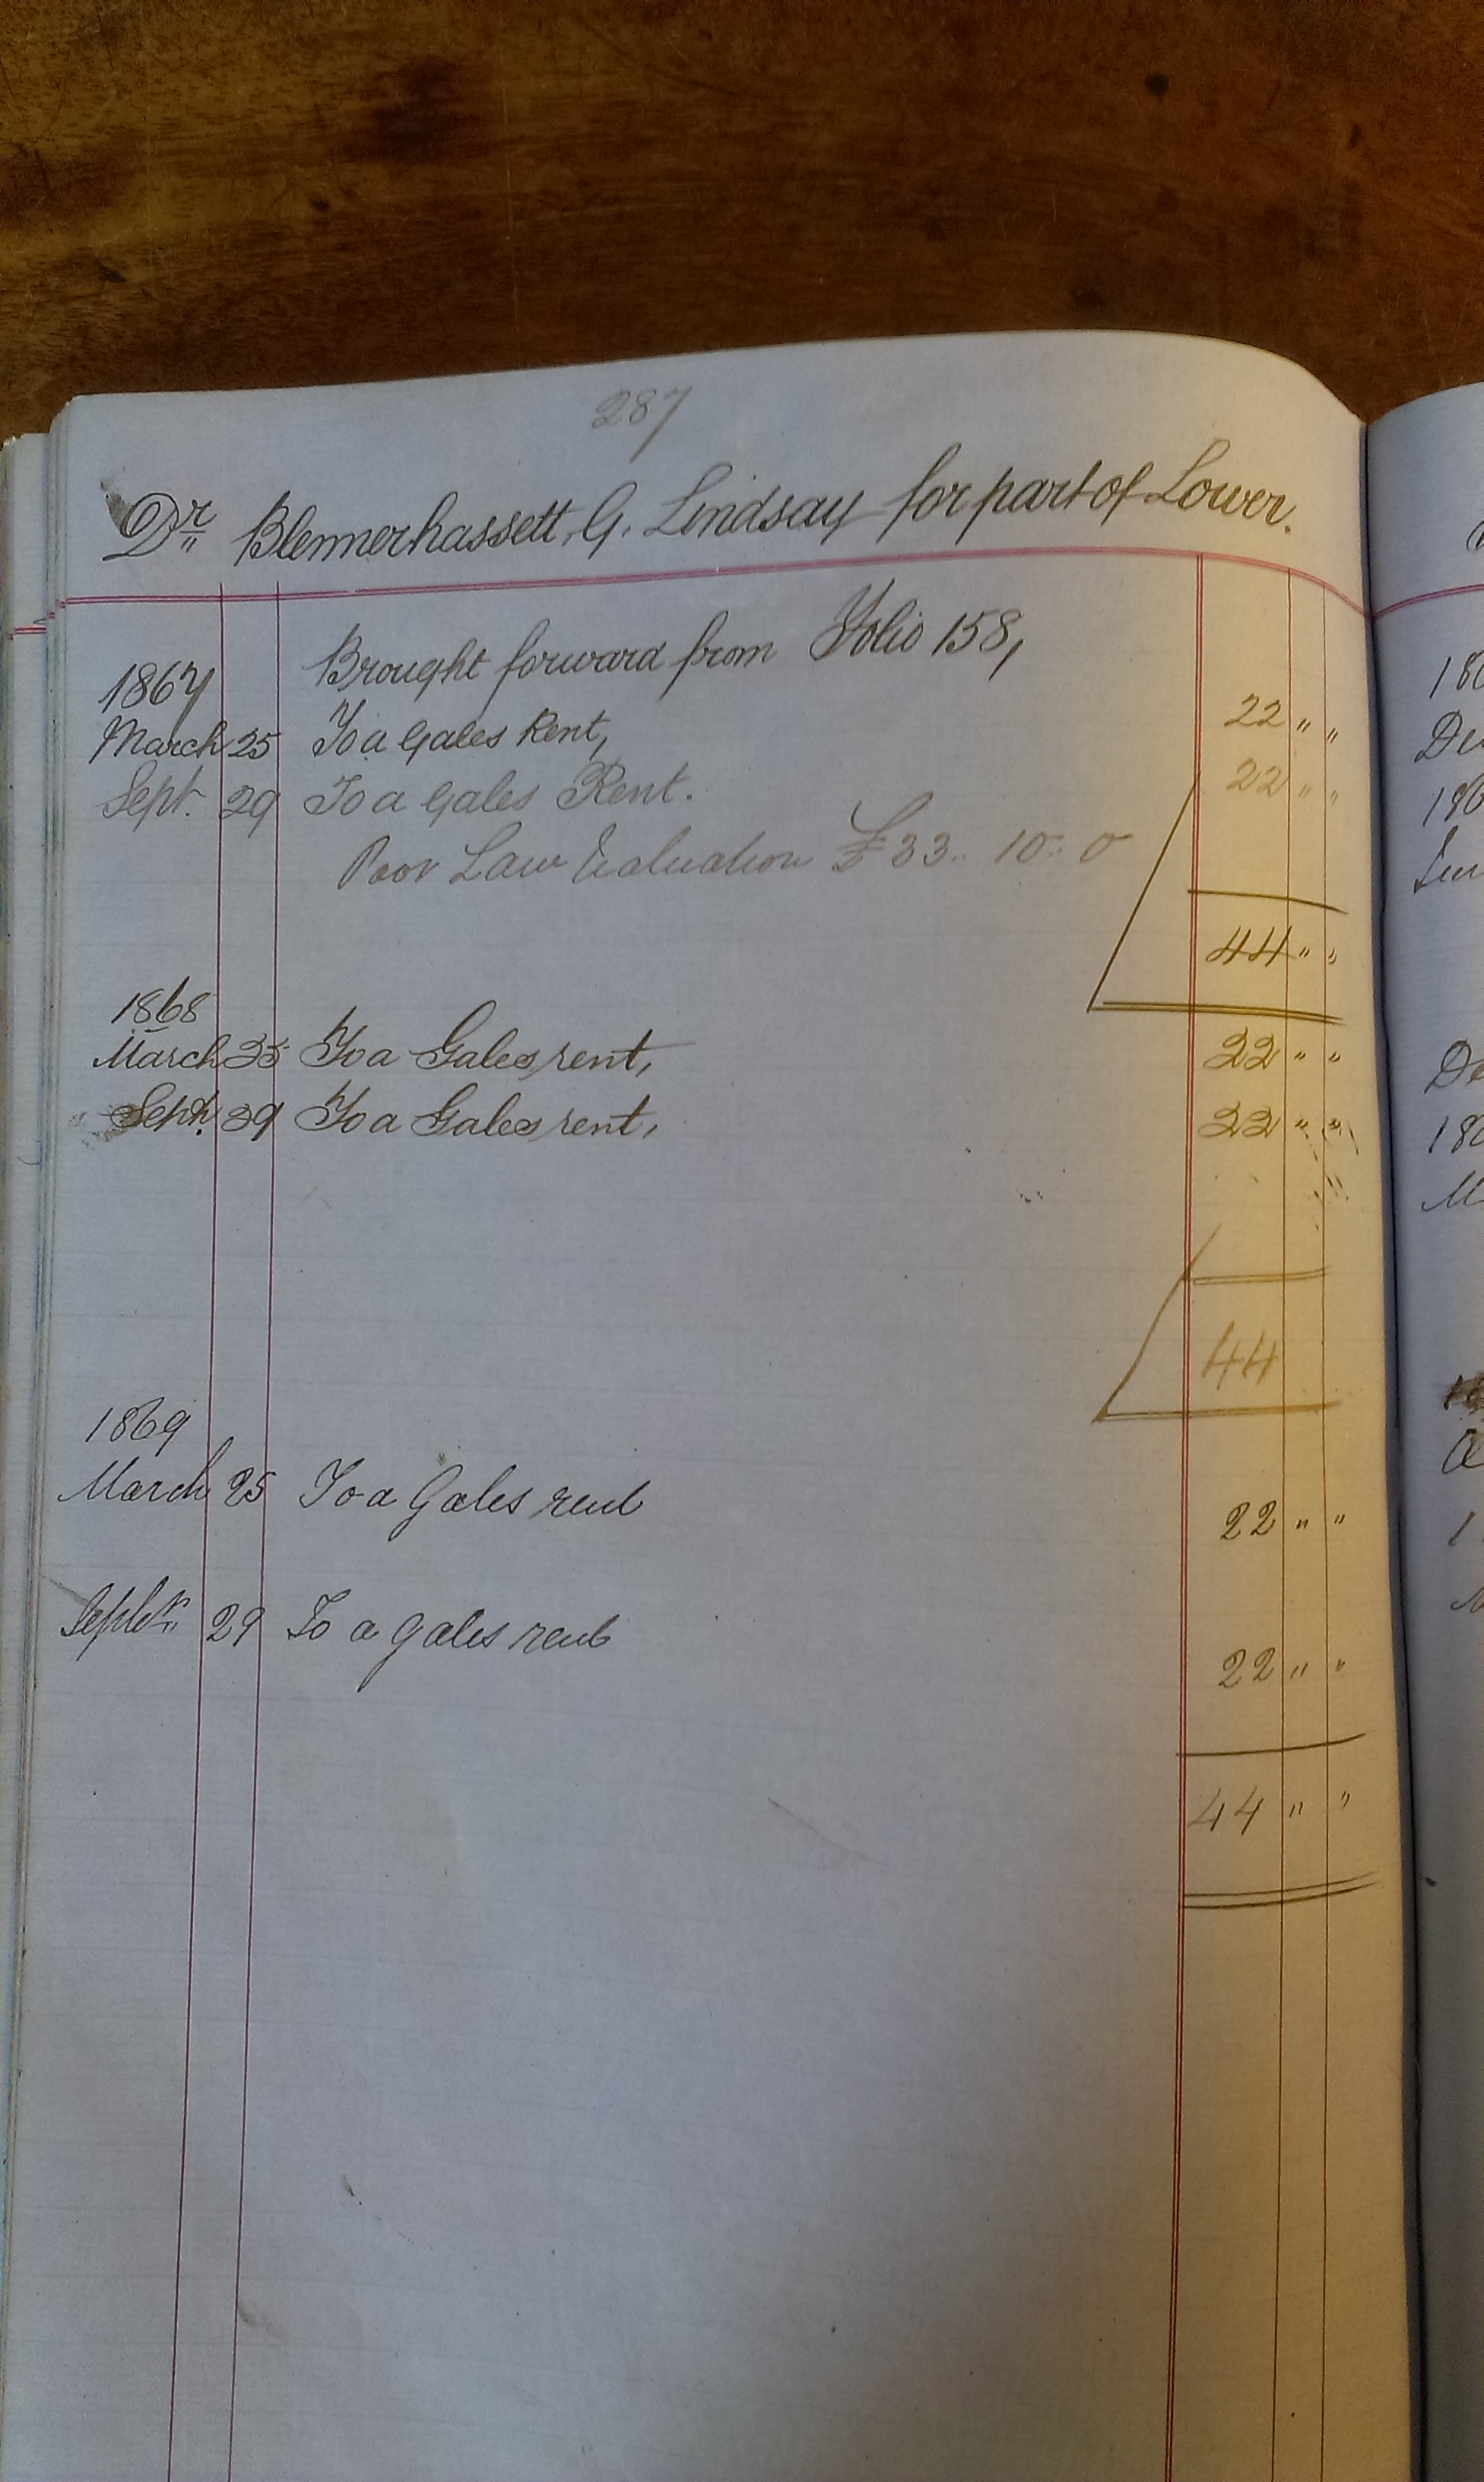 287
Dr Blennerhassett, G. Lindsay for part of Lower.
Brought forward from Folio 158,
1867
March 25 To a Gales Rent, 22 " "
Sept. 29 To a Gales Rent. 22 " "
Poor Law Valuation £33.. 10.. 0
44 " "
1868
March 25 To a Gales rent, 22 " "
Sept. 29 To a Gales rent, 22 " "
44
1869
March 25 To a Gales rent 22 " "
Septr. 29 To a Gales rent 22 " "
44 " "